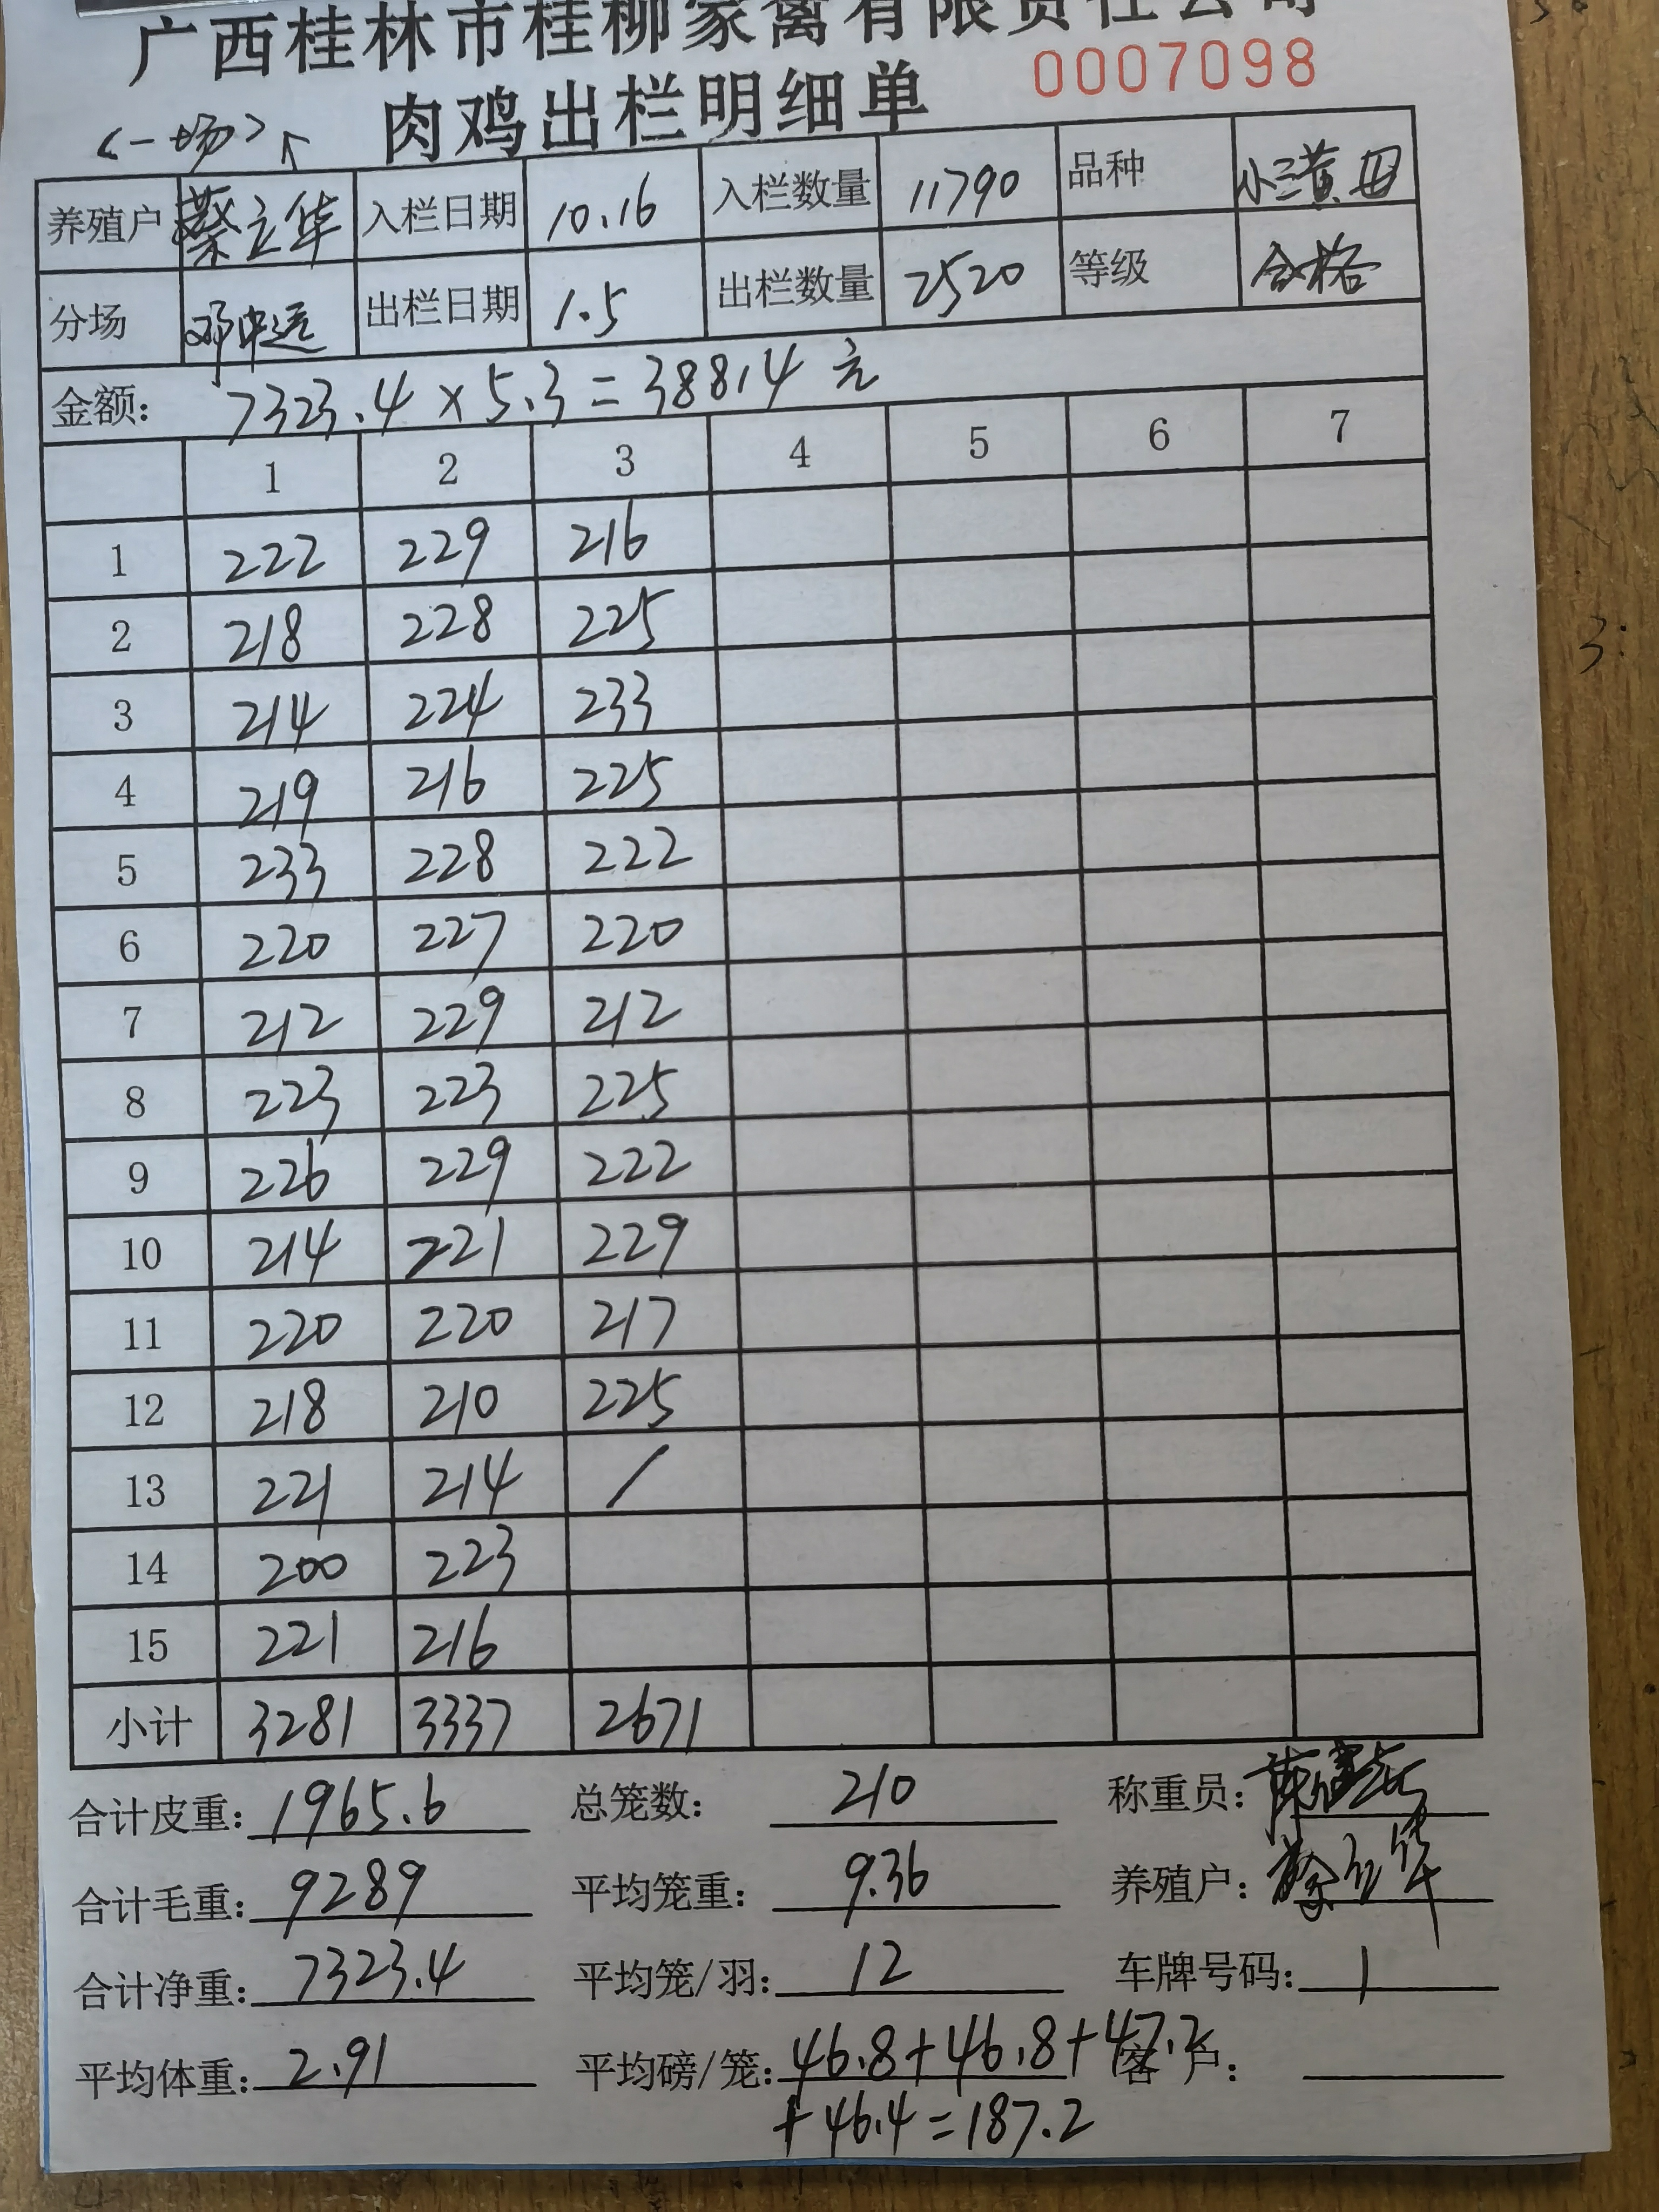 广西桂林市桂柳家禽有限责任公司
肉鸡出栏明细单 0007098
<一场>
养殖户 蔡立华 入栏日期 10.16 入栏数量 11790 品种 小三黄母
分场 邓中运 出栏日期 1.5 出栏数量 2520 等级 合格
金额: 7323.4×5.3=38814元
1 2 3 4 5 6 7
1 222 229 216
2 218 228 225
3 214 224 233
4 219 216 225
5 233 228 222
6 220 227 220
7 212 229 212
8 223 223 225
9 226 229 222
10 214 221 229
11 220 220 217
12 218 210 225
13 221 214 /
14 200 223
15 221 216
小计 3281 3337 2671
合计皮重: 1965.6 总笼数: 210 称重员:
合计毛重: 9289 平均笼重: 9.36 养殖户: 蔡立华
合计净重: 7323.4 平均笼/羽: 12 车牌号码: 1
平均体重: 2.91 平均磅/笼: 46.8+46.8+47.2 客户:
+46.4=187.2
3: